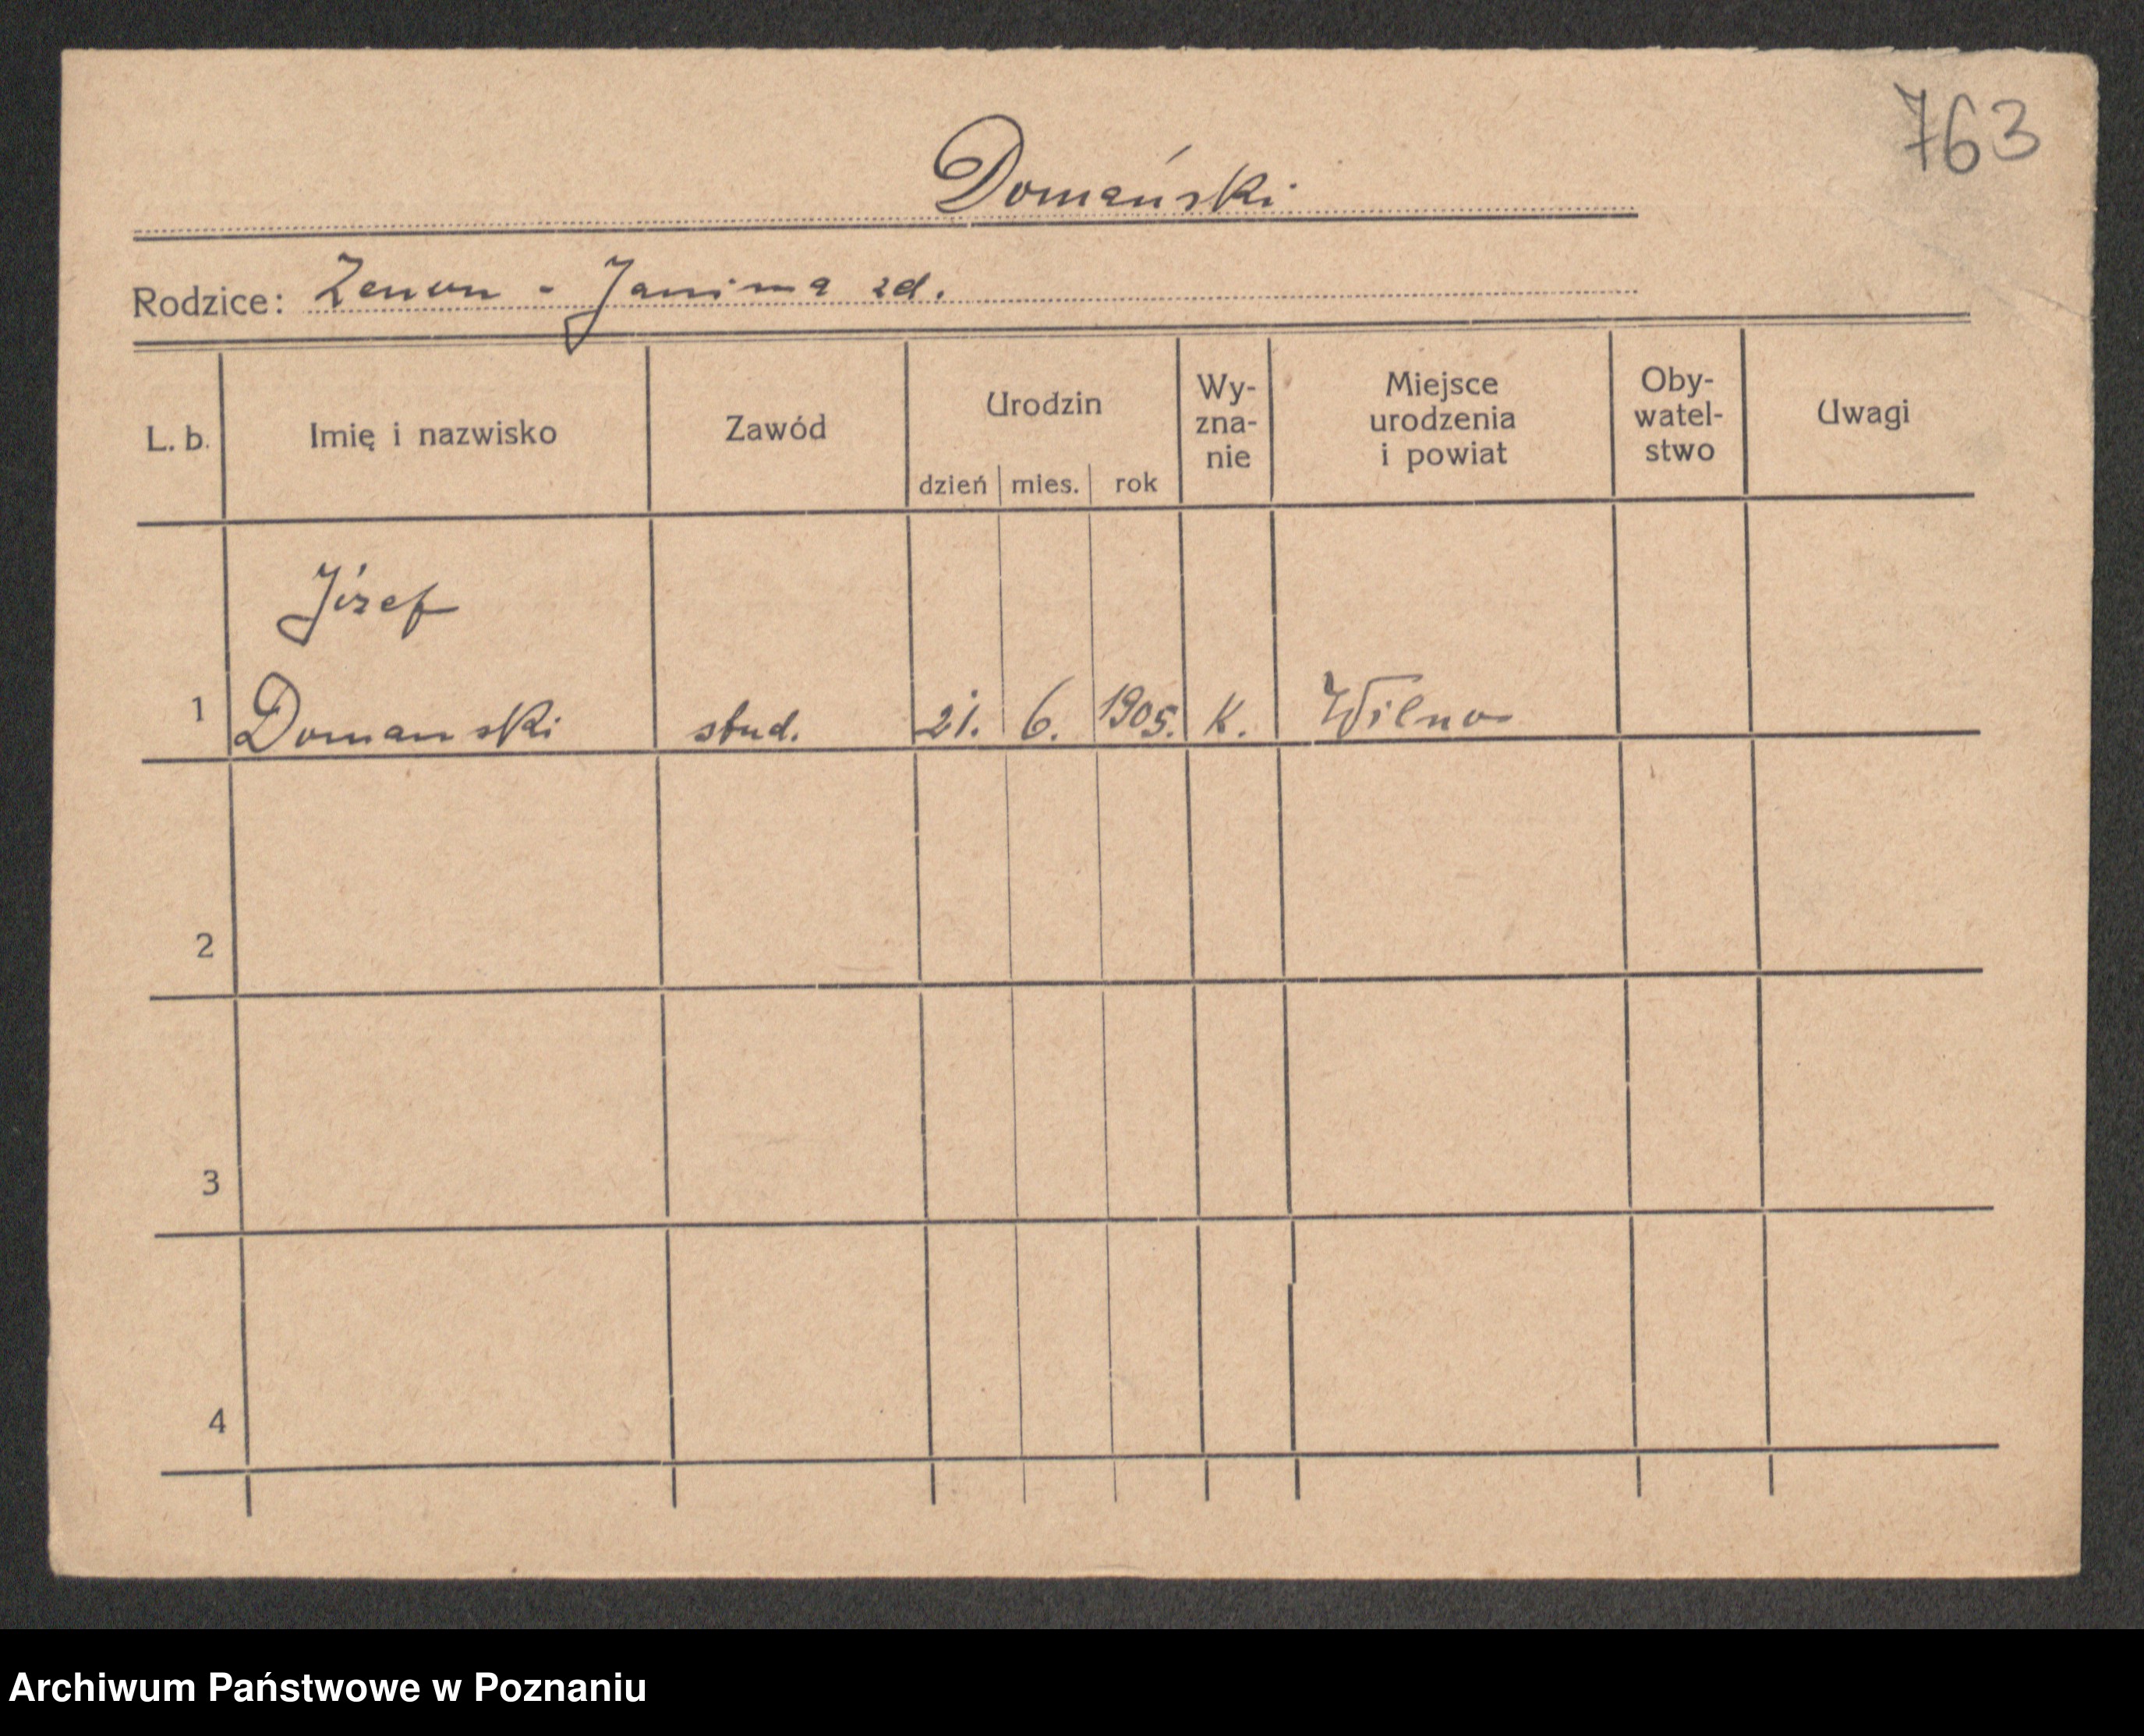 763
Domański
Rodzice: Zenon - Janina zd.
L. b.
Imię i nazwisko
Zawód
Urodzin
dzień mies. rok
Wy-
zna-
nie
Miejsce
urodzenia
i powiat
Oby-
watel-
stwo
Uwagi
Józef
1 Domanski stud. 21. 6. 1905. K. Wilno
2
3
4
Archiwum Państwowe w Poznaniu